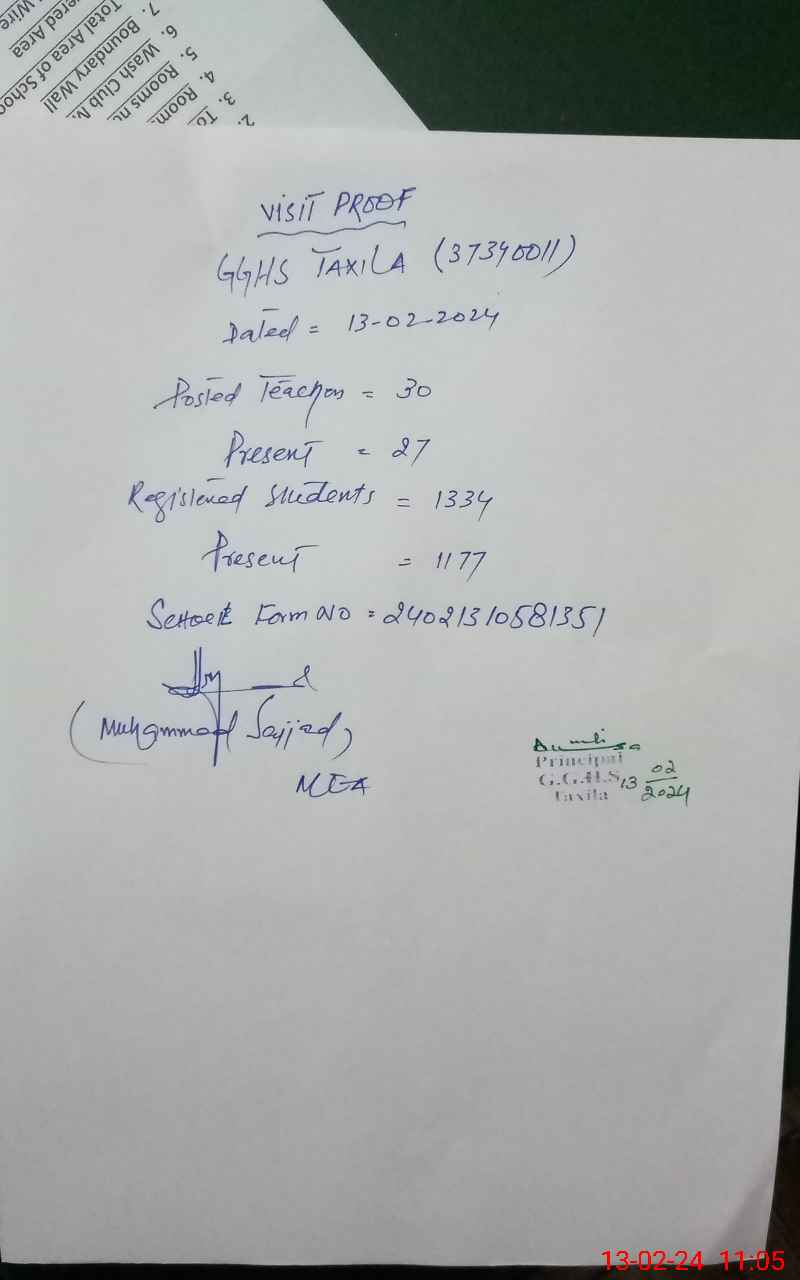 7. Boundary Wall
6. Wash Club
5. Rooms
4. Room
3. To
2.
Total Area of Schoo
ered Area
Wire
VISIT PROOF
GGHS TAXILA (37340011)
Dated = 13-02-2024
Posted Teachers = 30
Present = 27
Registered Students = 1334
Present = 1177
School Form NO = 24021310581351
(Muhammad Sajjad)
MEA
Principal
G.G.H.S.
Taxila
13 02
2024
13-02-24 11:05